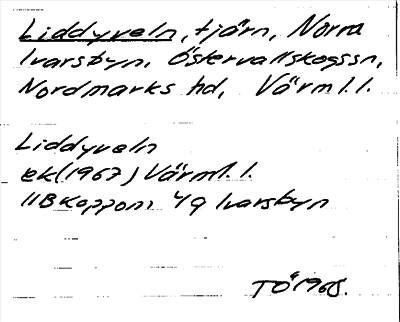 Liddyveln, tjärn, Norra
Ivarsbyn, Östervallskogssn,
Nordmarks hd, Värml. l.
Liddyveln
ek (1967) Värml. l.
11B Koppom 4g Ivarsbyn
TÖ 1968.